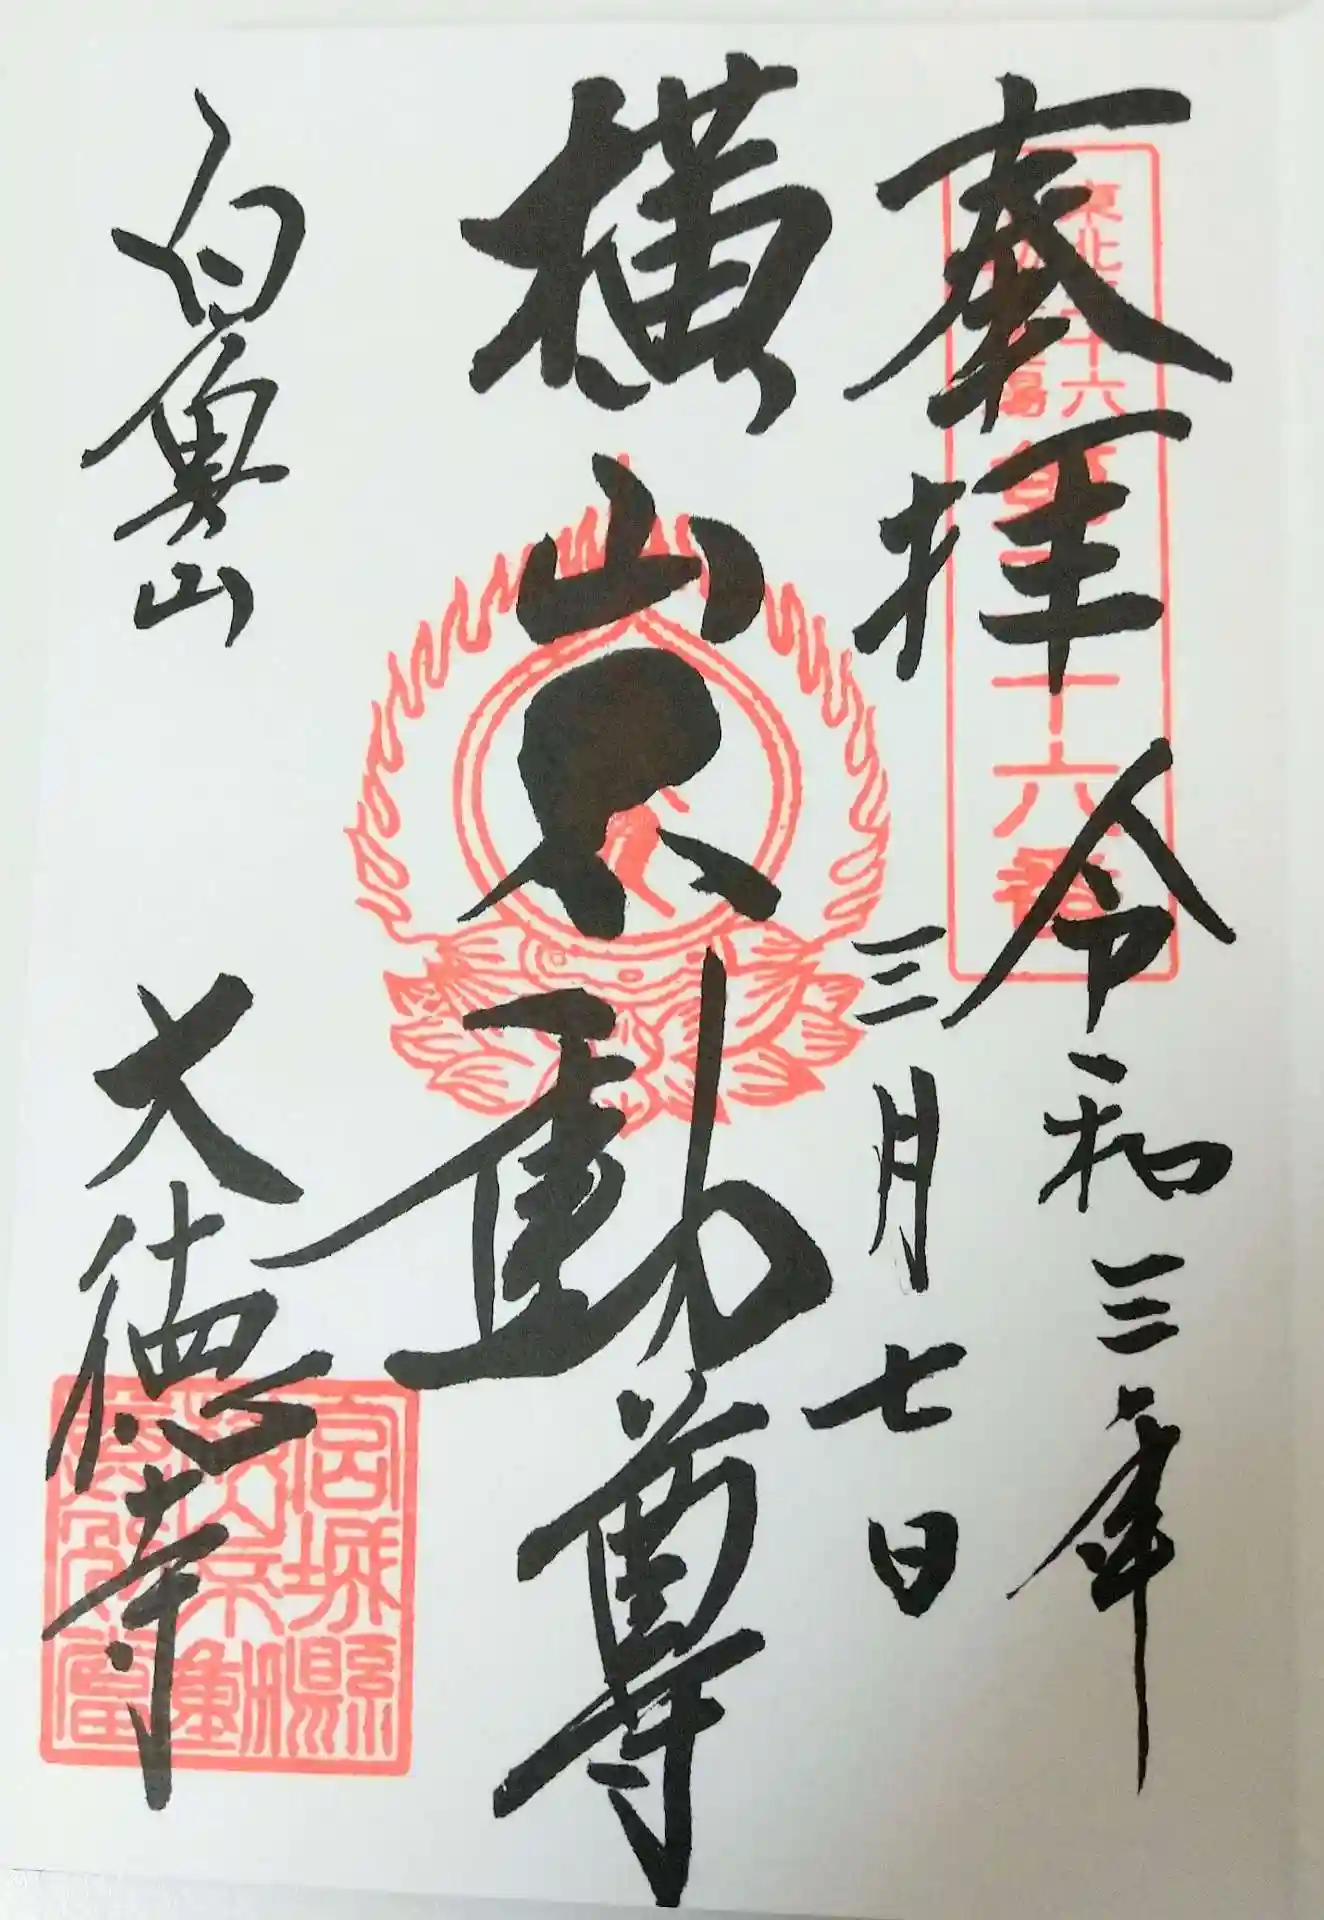 奉拝
令和三年
三月七日
横山不動尊
白魚山
大徳寺
東北三十六
不動尊霊場
第二十六番
宮城縣